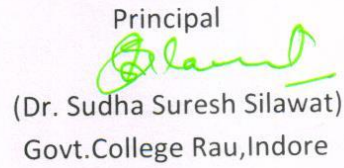 Principal
Silawat
(Dr. Sudha Suresh Silawat)
Govt.College Rau,Indore